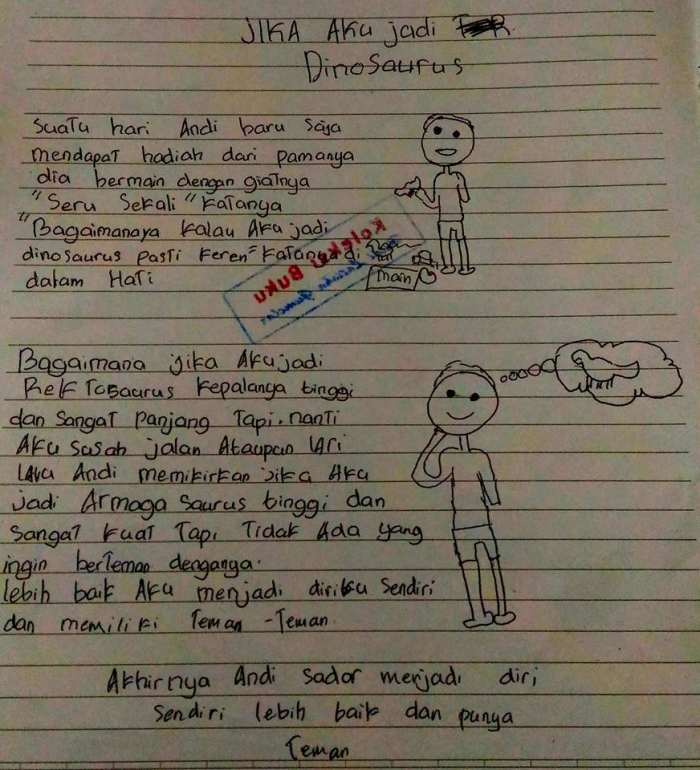 JIKA AKU jadi
DinoSaurus
Suatu hari Andi baru Saja
mendapat hadiah dari pamanya
dia bermain dengan giatnya
"Seru Sekali" Katanya
"Bagaimanaya Kalau Aku jadi
dinosaurus pasti Keren" Katanya di
dalam Hati
main
Koleksi Buku
Bagaimana jika Aku jadi
RekTosaurus Kepalanya tinggi
dan Sangat Panjang Tapi. nanti
AKu Susah jalan Ataupun lAri
lAlu Andi memikirkan jika AKu
jadi Armaga Saurus tinggi dan
Sangat Kuat Tapi Tidak Ada yang
ingin berteman denganya.
lebih baik AKu menjadi diriku Sendiri
dan memiliki Teman -Teman.
AKhirnya Andi Sador menjadi diri
Sendiri lebih baik dan punya
Teman